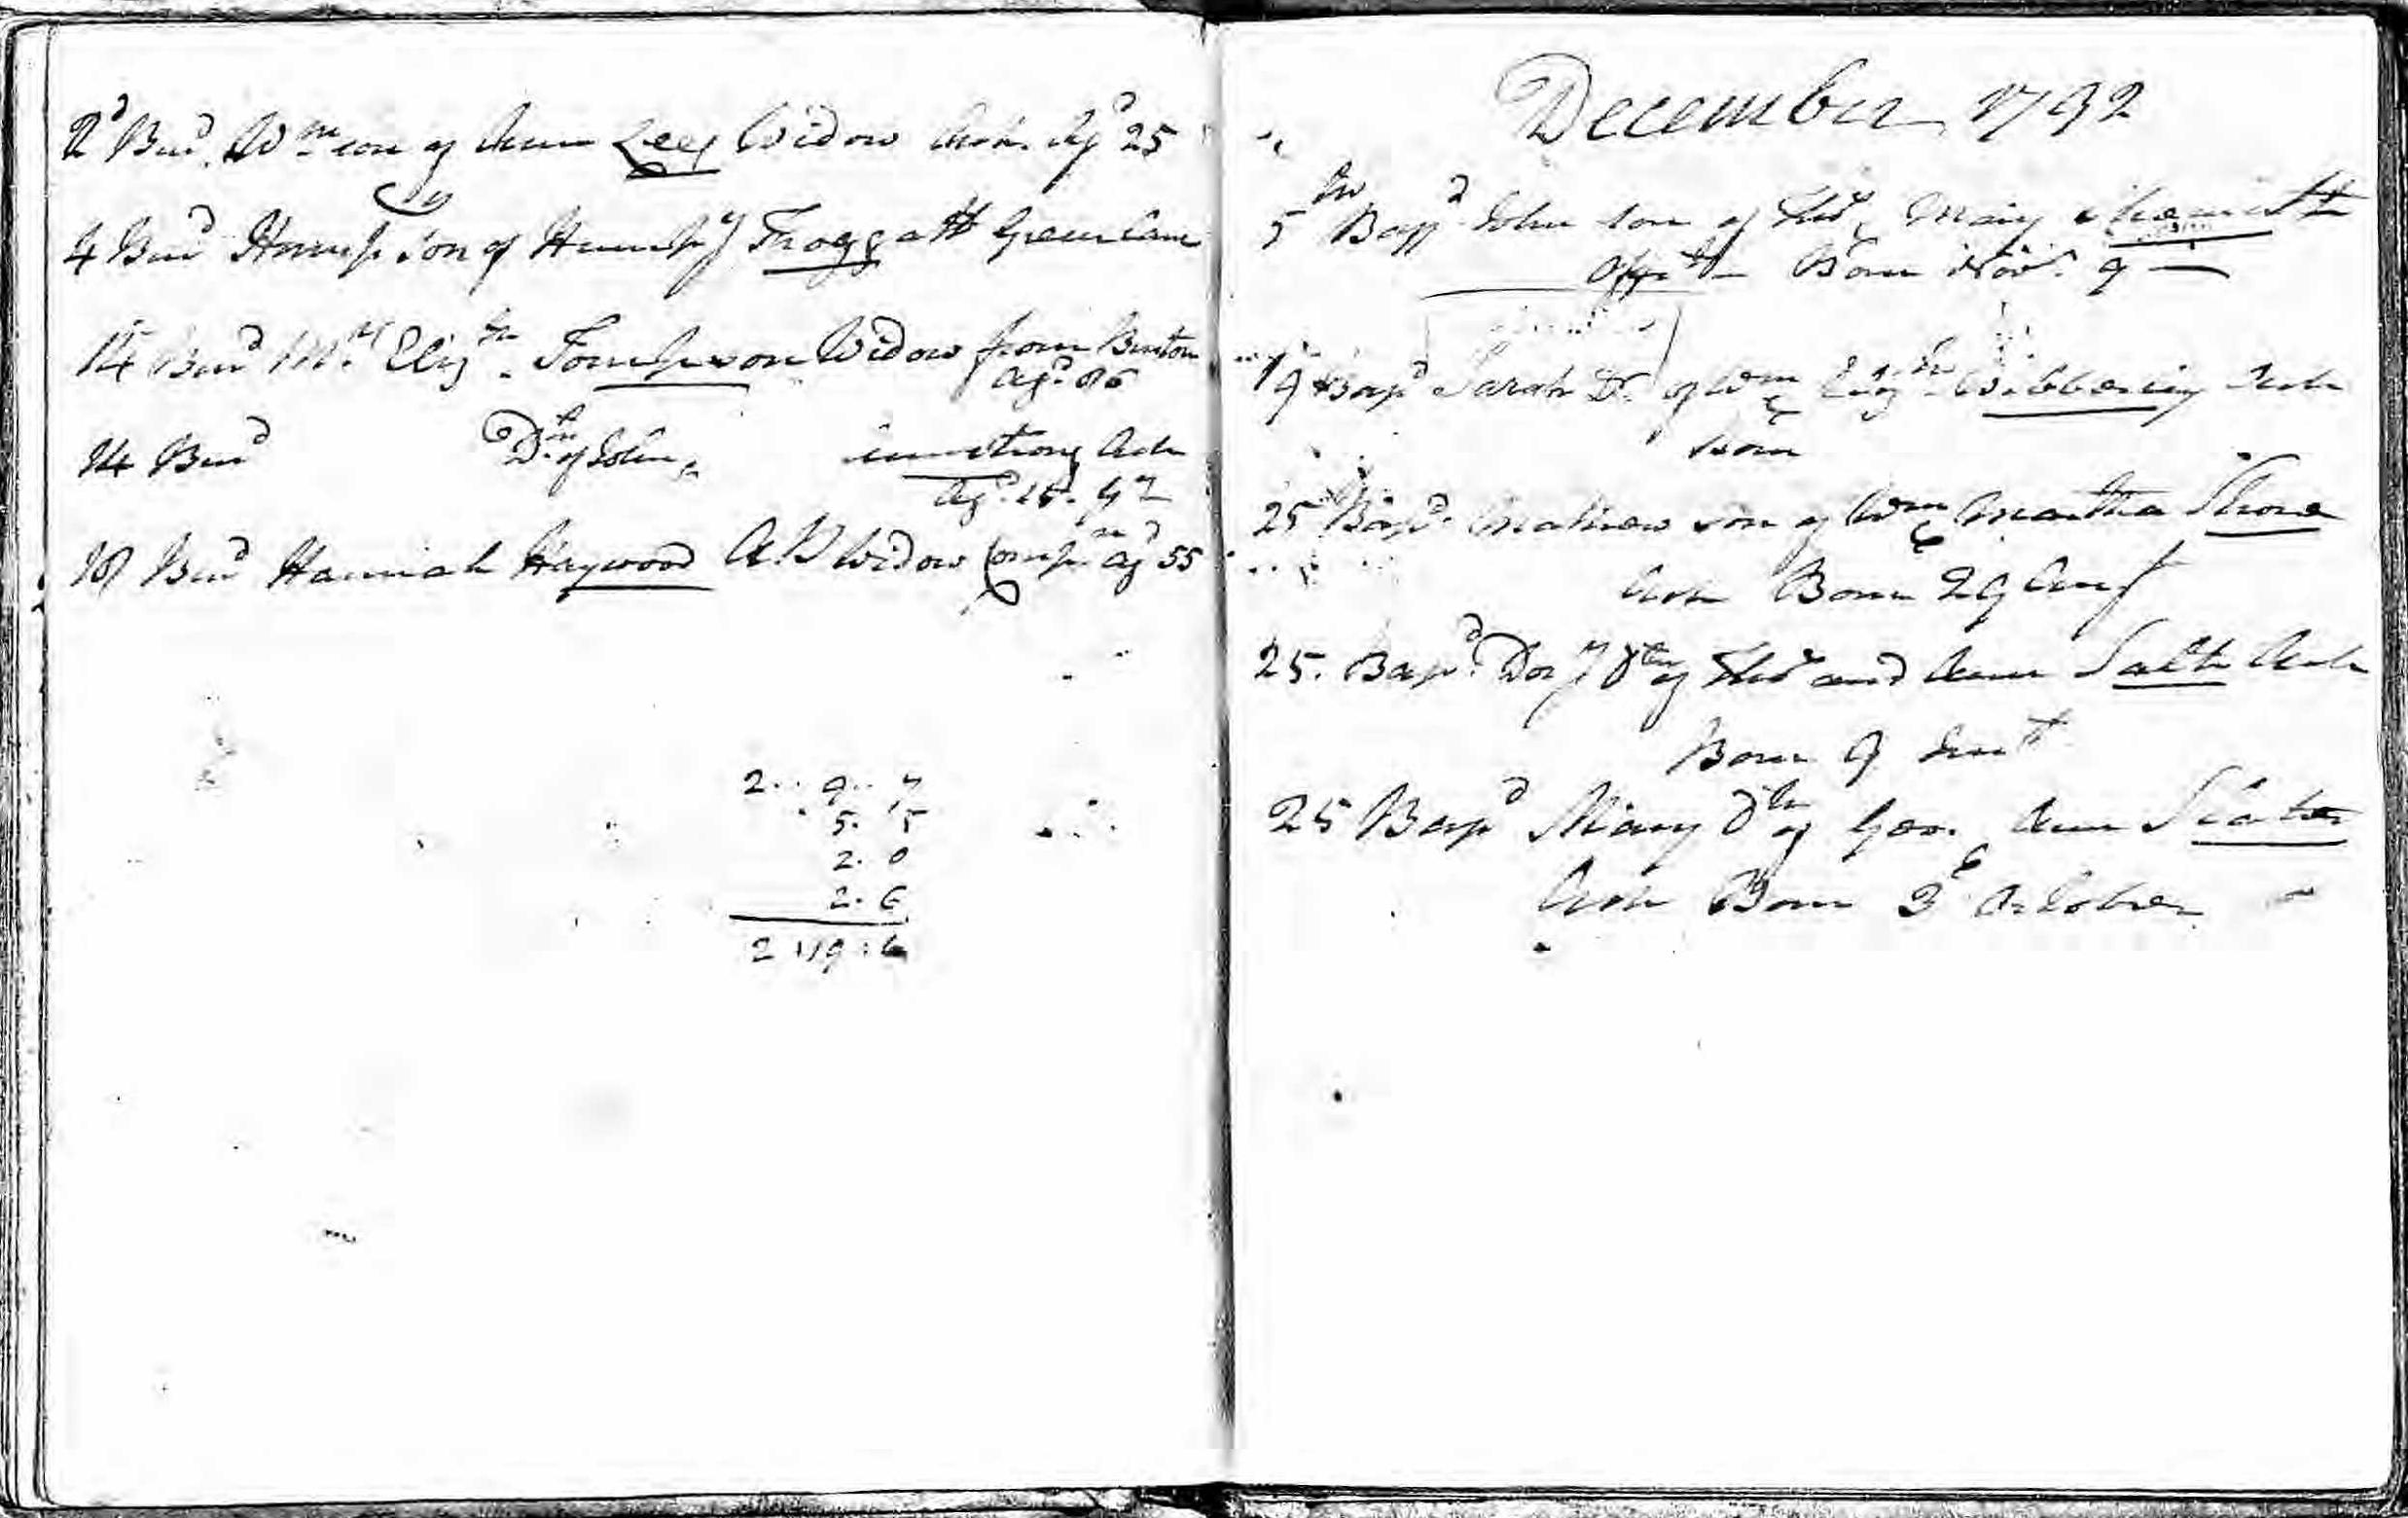 2d Burd. Wm son of Ann Lees Widow Ash. Agd 25
4 Burd Humpy son of Humphy Froggatt Green Lane
14 Burd Mrs Elizth Tompson Widow from Buxton
Agd. 86
14 Burd Dr of John & Armstrong Ash
Agd.
18 Burd Hannah Haywood A B Widow Compn agd 55
2 .. 9 .. 7
5 . 5
2 . 0
2 . 6
2 : 19 : 6
December 1792
5th Bapd John son of Thos & Mary
Born Novr. 9
19 Bapd Sarah Dr. of Wm & Elizth Wibberley Ash
Born
25 Bapd. Mathew son of Wm & Martha Shore
Ash Born 29 Augt
25. Bapd. Dory Dtr of Thos and Ann Salt Ash
Born 9 Inst
25 Bapd Mary Dtr of Geo. & Ann Slater
Ash Born 3d October